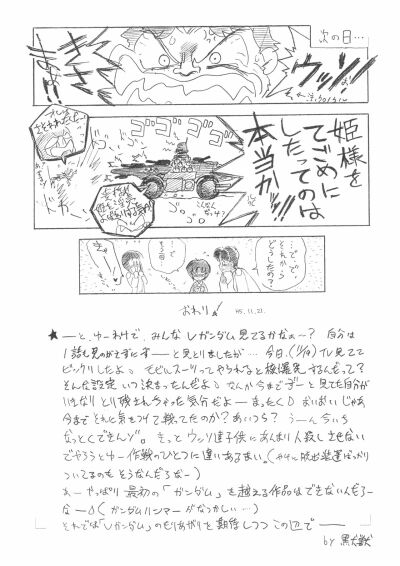 次の日…
ウッツ!
姫様を
てごめに
したってのは
本当か!!
ゴゴゴゴ
ゴロ
ゴロ
で…で…
それから
どうしたの?
おわり!
'95.11.21.
★――と、ゆーわけで、みんなVガンダム見てるかなぁ～? 自分は
1話も見のがさずにずーーと見とりましたが… 今日、(11/19) TV見てて
ビックリしたよ。モビルスーツってやられると核爆発するんだって?
そんな設定いつ決まったんだよ。なんか今までずーと見てた自分が
いきなりとり残されちゃった気分だよーまったく。おいおいじゃあ
今までそれに気をつけて戦ってたのか?あいつら? うーん今いち
なっとくできんゾ。きっとウッソ達子供にあんまり人殺しさせない
でやろうとゆー作戦のひとつに違いあるまい。(やけに脱出装置ばっかり
ついてるのもそうなんだろなー)
あーやっぱり最初の「ガンダム」を越える作品はできないんだろー
なー(ガンダムハンマーがなつかしい…)
それでは「Vガンダム」のもりあがりを期待しつつこの辺で――
by 黒犬獣